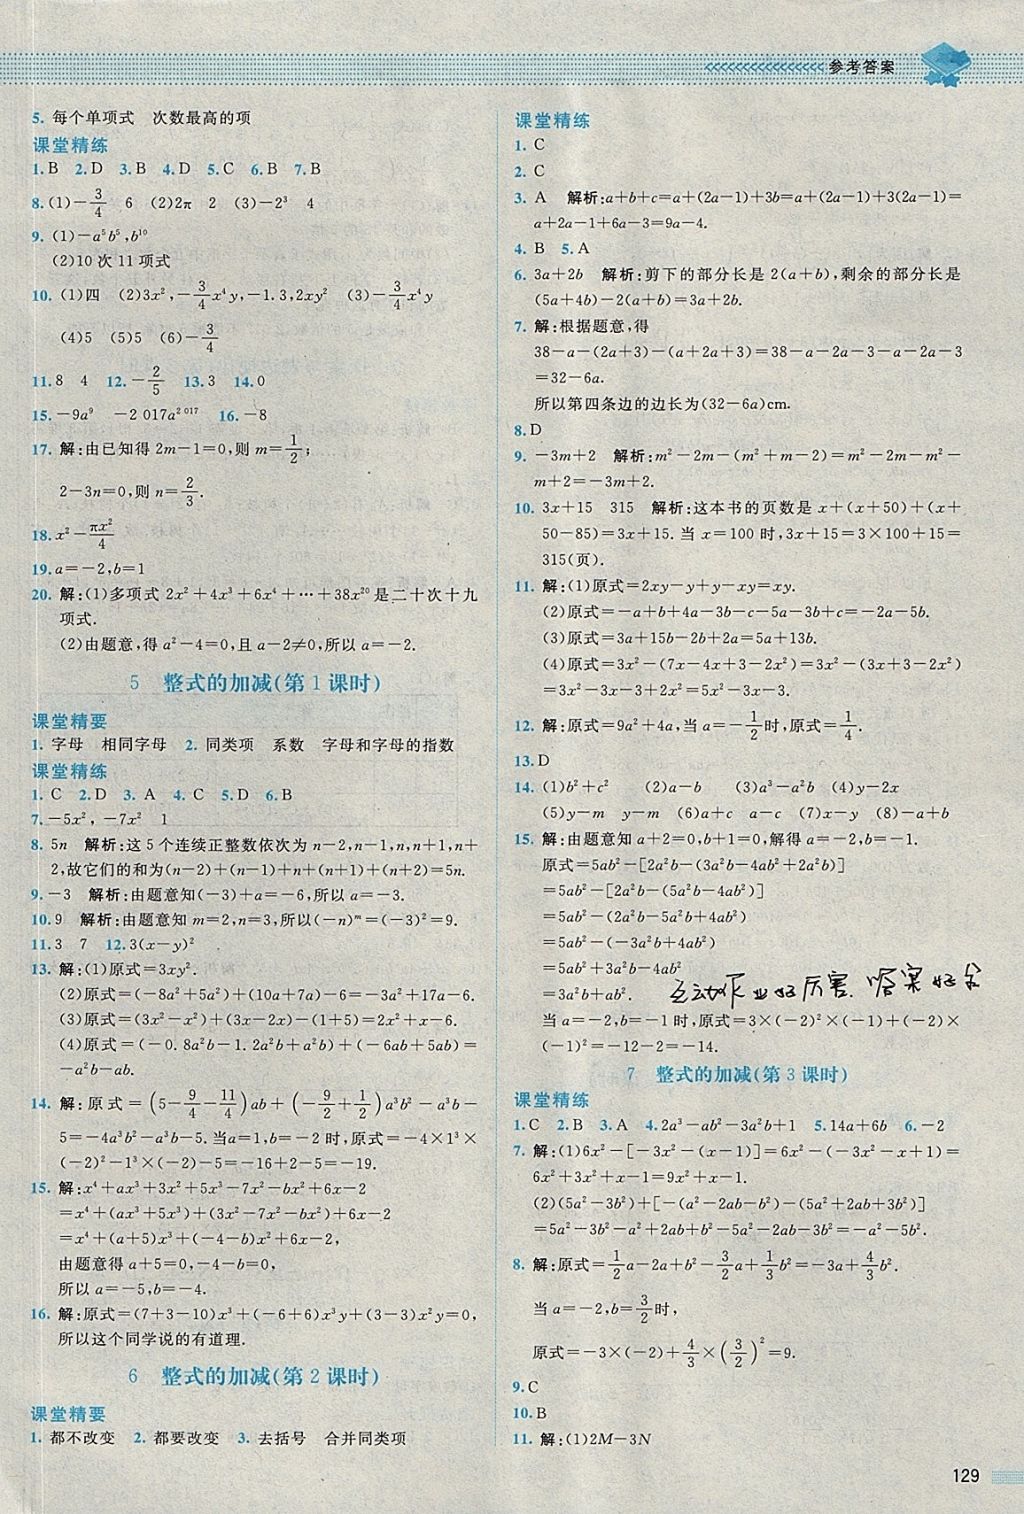 参考答案
5. 每个单项式　次数最高的项
课堂精练
1. B　2. D　3. B　4. D　5. C　6. B　7. B
8. (1)-3/4　6　(2)2π　2　(3)-2³　4
9. (1)-a⁵b⁵,b¹⁰
(2)10次11项式
10. (1)四　(2)3x²,-3/4x⁴y,-1.3,2xy²　(3)-3/4x⁴y
(4)5　(5)5　(6)-3/4
11. 8　4　12. -2/5　13. 3　14. 0
15. -9a⁹　-2 017a²⁰¹⁷　16. -8
17. 解:由已知得2m-1=0,则m=1/2;
2-3n=0,则n=2/3.
18. x²-πx²/4
19. a=-2,b=1
20. 解:(1)多项式2x²+4x³+6x⁴+…+38x²⁰是二十次十九
项式.
(2)由题意,得a²-4=0,且a-2≠0,所以a=-2.
5　整式的加减(第1课时)
课堂精要
1. 字母　相同字母　2. 同类项　系数　字母和字母的指数
课堂精练
1. C　2. D　3. A　4. C　5. D　6. B
7. -5x²,-7x²　1
8. 5n　解析:这5个连续正整数依次为n-2,n-1,n,n+1,n+
2,故它们的和为(n-2)+(n-1)+n+(n+1)+(n+2)=5n.
9. -3　解析:由题意知(-3)+a=-6,所以a=-3.
10. 9　解析:由题意知m=2,n=3,所以(-n)ᵐ=(-3)²=9.
11. 3　7　12. 3(x-y)²
13. 解:(1)原式=3xy².
(2)原式=(-8a²+5a²)+(10a+7a)-6=-3a²+17a-6.
(3)原式=(3x²-x²)+(3x-2x)-(1+5)=2x²+x-6.
(4)原式=(-0.8a²b-1.2a²b+a²b)+(-6ab+5ab)=
-a²b-ab.
14. 解:原式=(5-9/4-11/4)ab+(-9/2+1/2)a³b²-a³b-
5=-4a³b²-a³b-5.当a=1,b=-2时,原式=-4×1³×
(-2)²-1³×(-2)-5=-16+2-5=-19.
15. 解:x⁴+ax³+3x²+5x³-7x²-bx²+6x-2
=x⁴+(ax³+5x³)+(3x²-7x²-bx²)+6x-2
=x⁴+(a+5)x³+(-4-b)x²+6x-2,
由题意得a+5=0,-4-b=0,
所以a=-5,b=-4.
16. 解:原式=(7+3-10)x³+(-6+6)x³y+(3-3)x²y=0,
所以这个同学说的有道理.
6　整式的加减(第2课时)
课堂精要
1. 都不改变　2. 都要改变　3. 去括号　合并同类项
课堂精练
1. C
2. C
3. A　解析:a+b+c=a+(2a-1)+3b=a+(2a-1)+3(2a-1)=
a+2a-1+6a-3=9a-4.
4. B　5. A
6. 3a+2b　解析:剪下的部分长是2(a+b),剩余的部分长是
(5a+4b)-2(a+b)=3a+2b.
7. 解:根据题意,得
38-a-(2a+3)-(a+2a+3)=38-a-2a-3-a-2a-3
=32-6a.
所以第四条边的边长为(32-6a)cm.
8. D
9. -3m+2　解析:m²-2m-(m²+m-2)=m²-2m-m²-
m+2=-3m+2.
10. 3x+15　315　解析:这本书的页数是x+(x+50)+(x+
50-85)=3x+15.当x=100时,3x+15=3×100+15=
315(页).
11. 解:(1)原式=2xy-y+y-xy=xy.
(2)原式=-a+b+4a-3b-c-5a-3b+c=-2a-5b.
(3)原式=3a+15b-2b+2a=5a+13b.
(4)原式=3x²-(7x-4x+3-2x²)=3x²-(3x+3-2x²)
=3x²-3x-3+2x²=5x²-3x-3.
12. 解:原式=9a²+4a,当a=-1/2时,原式=1/4.
13. D
14. (1)b²+c²　(2)a-b　(3)a³-a²b　(4)y-2x
(5)y-m　y-m　(6)a+c　a-c　(7)x-y　(8)-a+b
15. 解:由题意知a+2=0,b+1=0,解得a=-2,b=-1.
原式=5ab²-[2a²b-(3a²b-4ab²+2a²b)]
=5ab²-[2a²b-(5a²b-4ab²)]
=5ab²-(2a²b-5a²b+4ab²)
=5ab²-(-3a²b+4ab²)
=5ab²+3a²b-4ab²
=3a²b+ab².
互动作业好厉害.答案好全
当a=-2,b=-1时,原式=3×(-2)²×(-1)+(-2)×
(-1)²=-12-2=-14.
7　整式的加减(第3课时)
课堂精练
1. C　2. B　3. A　4. 2a³-ab²-3a²b+1　5. 14a+6b　6. -2
7. 解:(1)6x²-[-3x²-(x-1)]=6x²-(-3x²-x+1)=
6x²+3x²+x-1=9x²+x-1.
(2)(5a²-3b²)+[-(a²-2ab-b²)-(5a²+2ab+3b²)]
=5a²-3b²-a²+2ab+b²-5a²-2ab-3b²=-a²-5b².
8. 解:原式=1/2a-2a+2/3b²-3/2a+1/3b²=-3a+4/3b².
当a=-2,b=3/2时,
原式=-3×(-2)+4/3×(3/2)²=9.
9. C
10. B
11. 解:(1)2M-3N
129